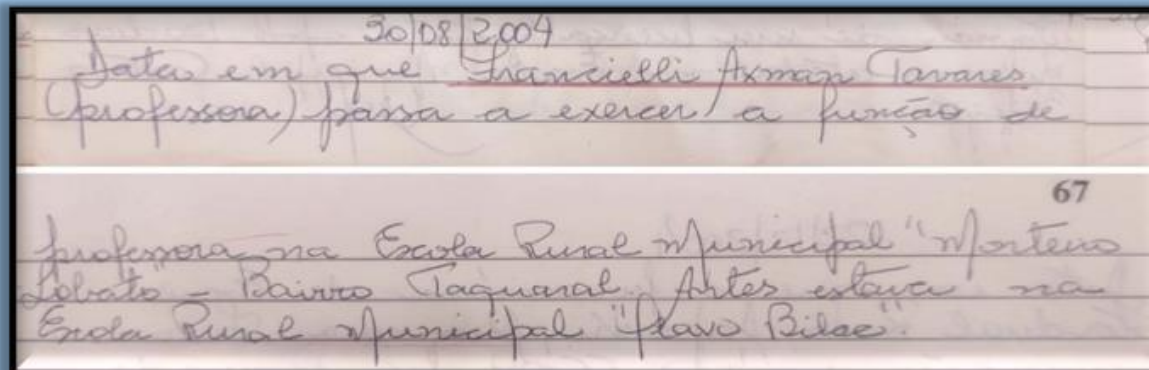 30/08/2004
Data em que Francielli Axman Tavares
(professora) passa a exercer a função de
67
professora na Escola Rural Municipal "Monteiro
Lobato" - Bairro Taquaral. Antes estava na
Escola Rural Municipal "Olavo Bilac".